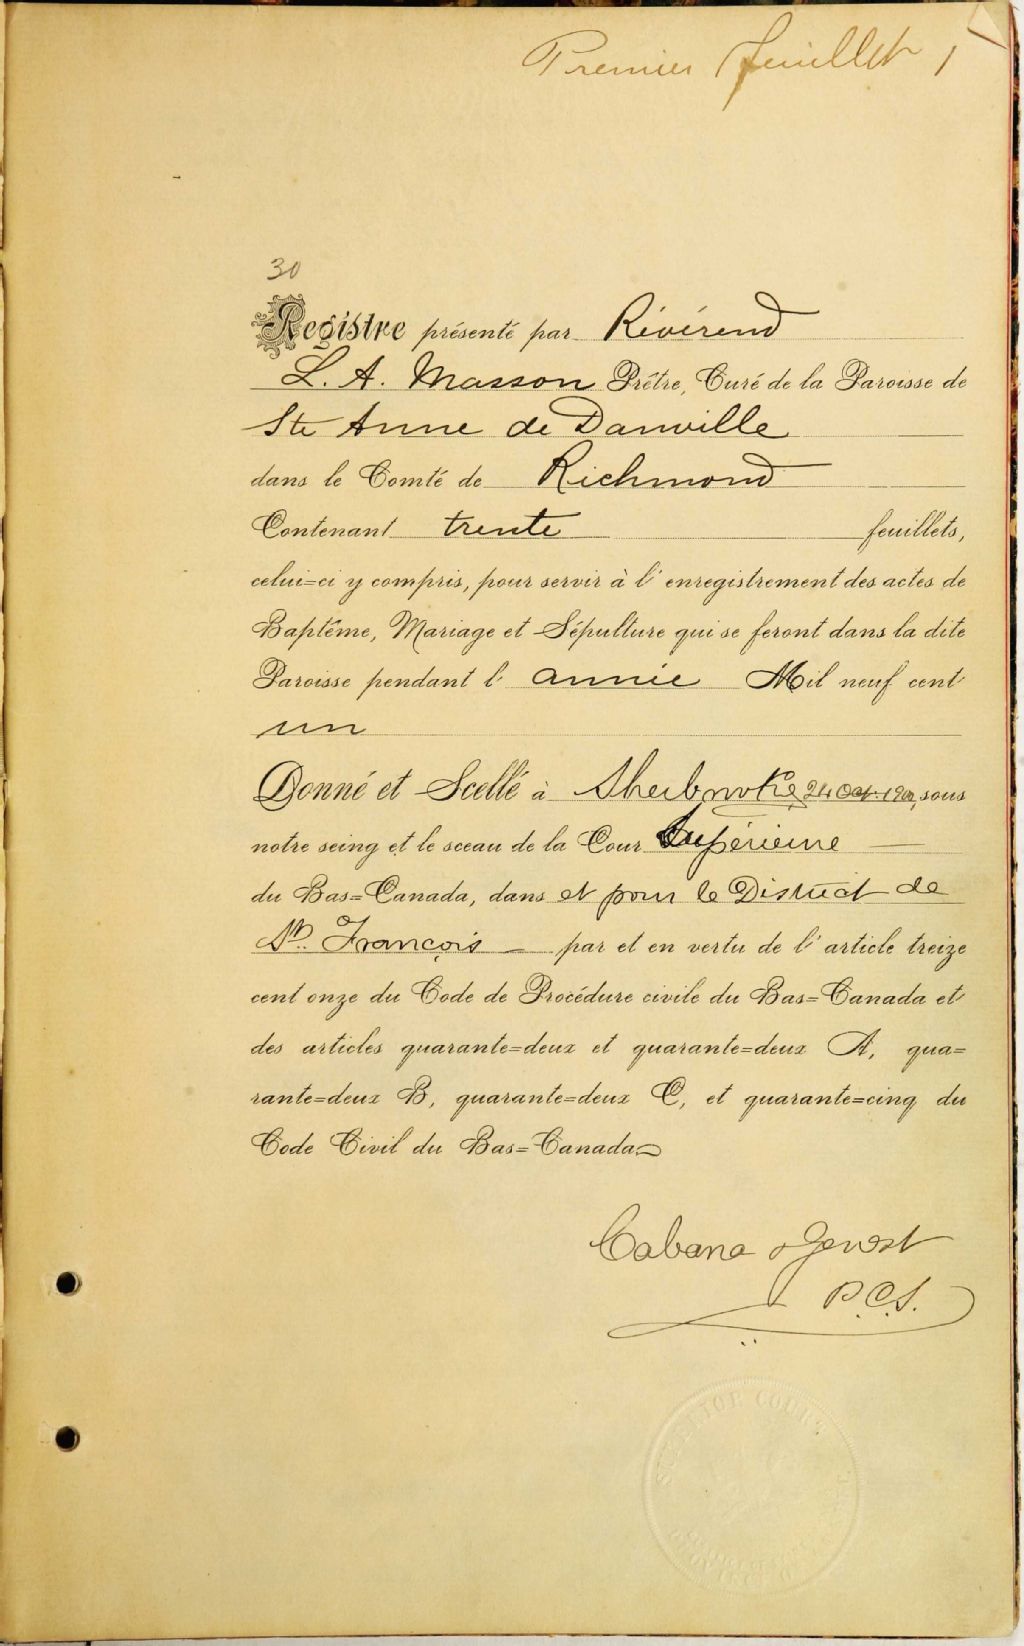 Premier feuillet 1
30
Registre présenté par Révérend
L. A. Masson Prêtre, Curé de la Paroisse de
Ste Anne de Danville
dans le Comté de Richmond
Contenant trente feuillets,
celui=ci y compris, pour servir à l'enregistrement des actes de
Baptême, Mariage et Sépulture qui se feront dans la dite
Paroisse pendant l'année Mil neuf cent
un
Donné et Scellé à Sherbrooke 24 Oct. sous
notre seing et le sceau de la Cour Supérieure
du Bas=Canada, dans et pour le District de
St. François par et en vertu de l'article treize
cent onze du Code de Procédure civile du Bas=Canada et
des articles quarante=deux et quarante=deux A, qua=
rante=deux B, quarante=deux C, et quarante=cinq du
Code Civil du Bas=Canada
Cabana & Genest
P.C.S.
SUPERIOR COURT